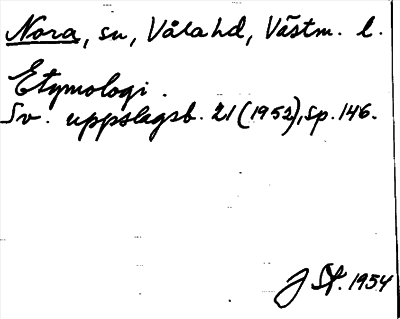 Nora, sn, Våla hd, Västm. l.
Etymologi.
Sv. uppslagsb. 21 (1952), sp. 146.
J St. 1954